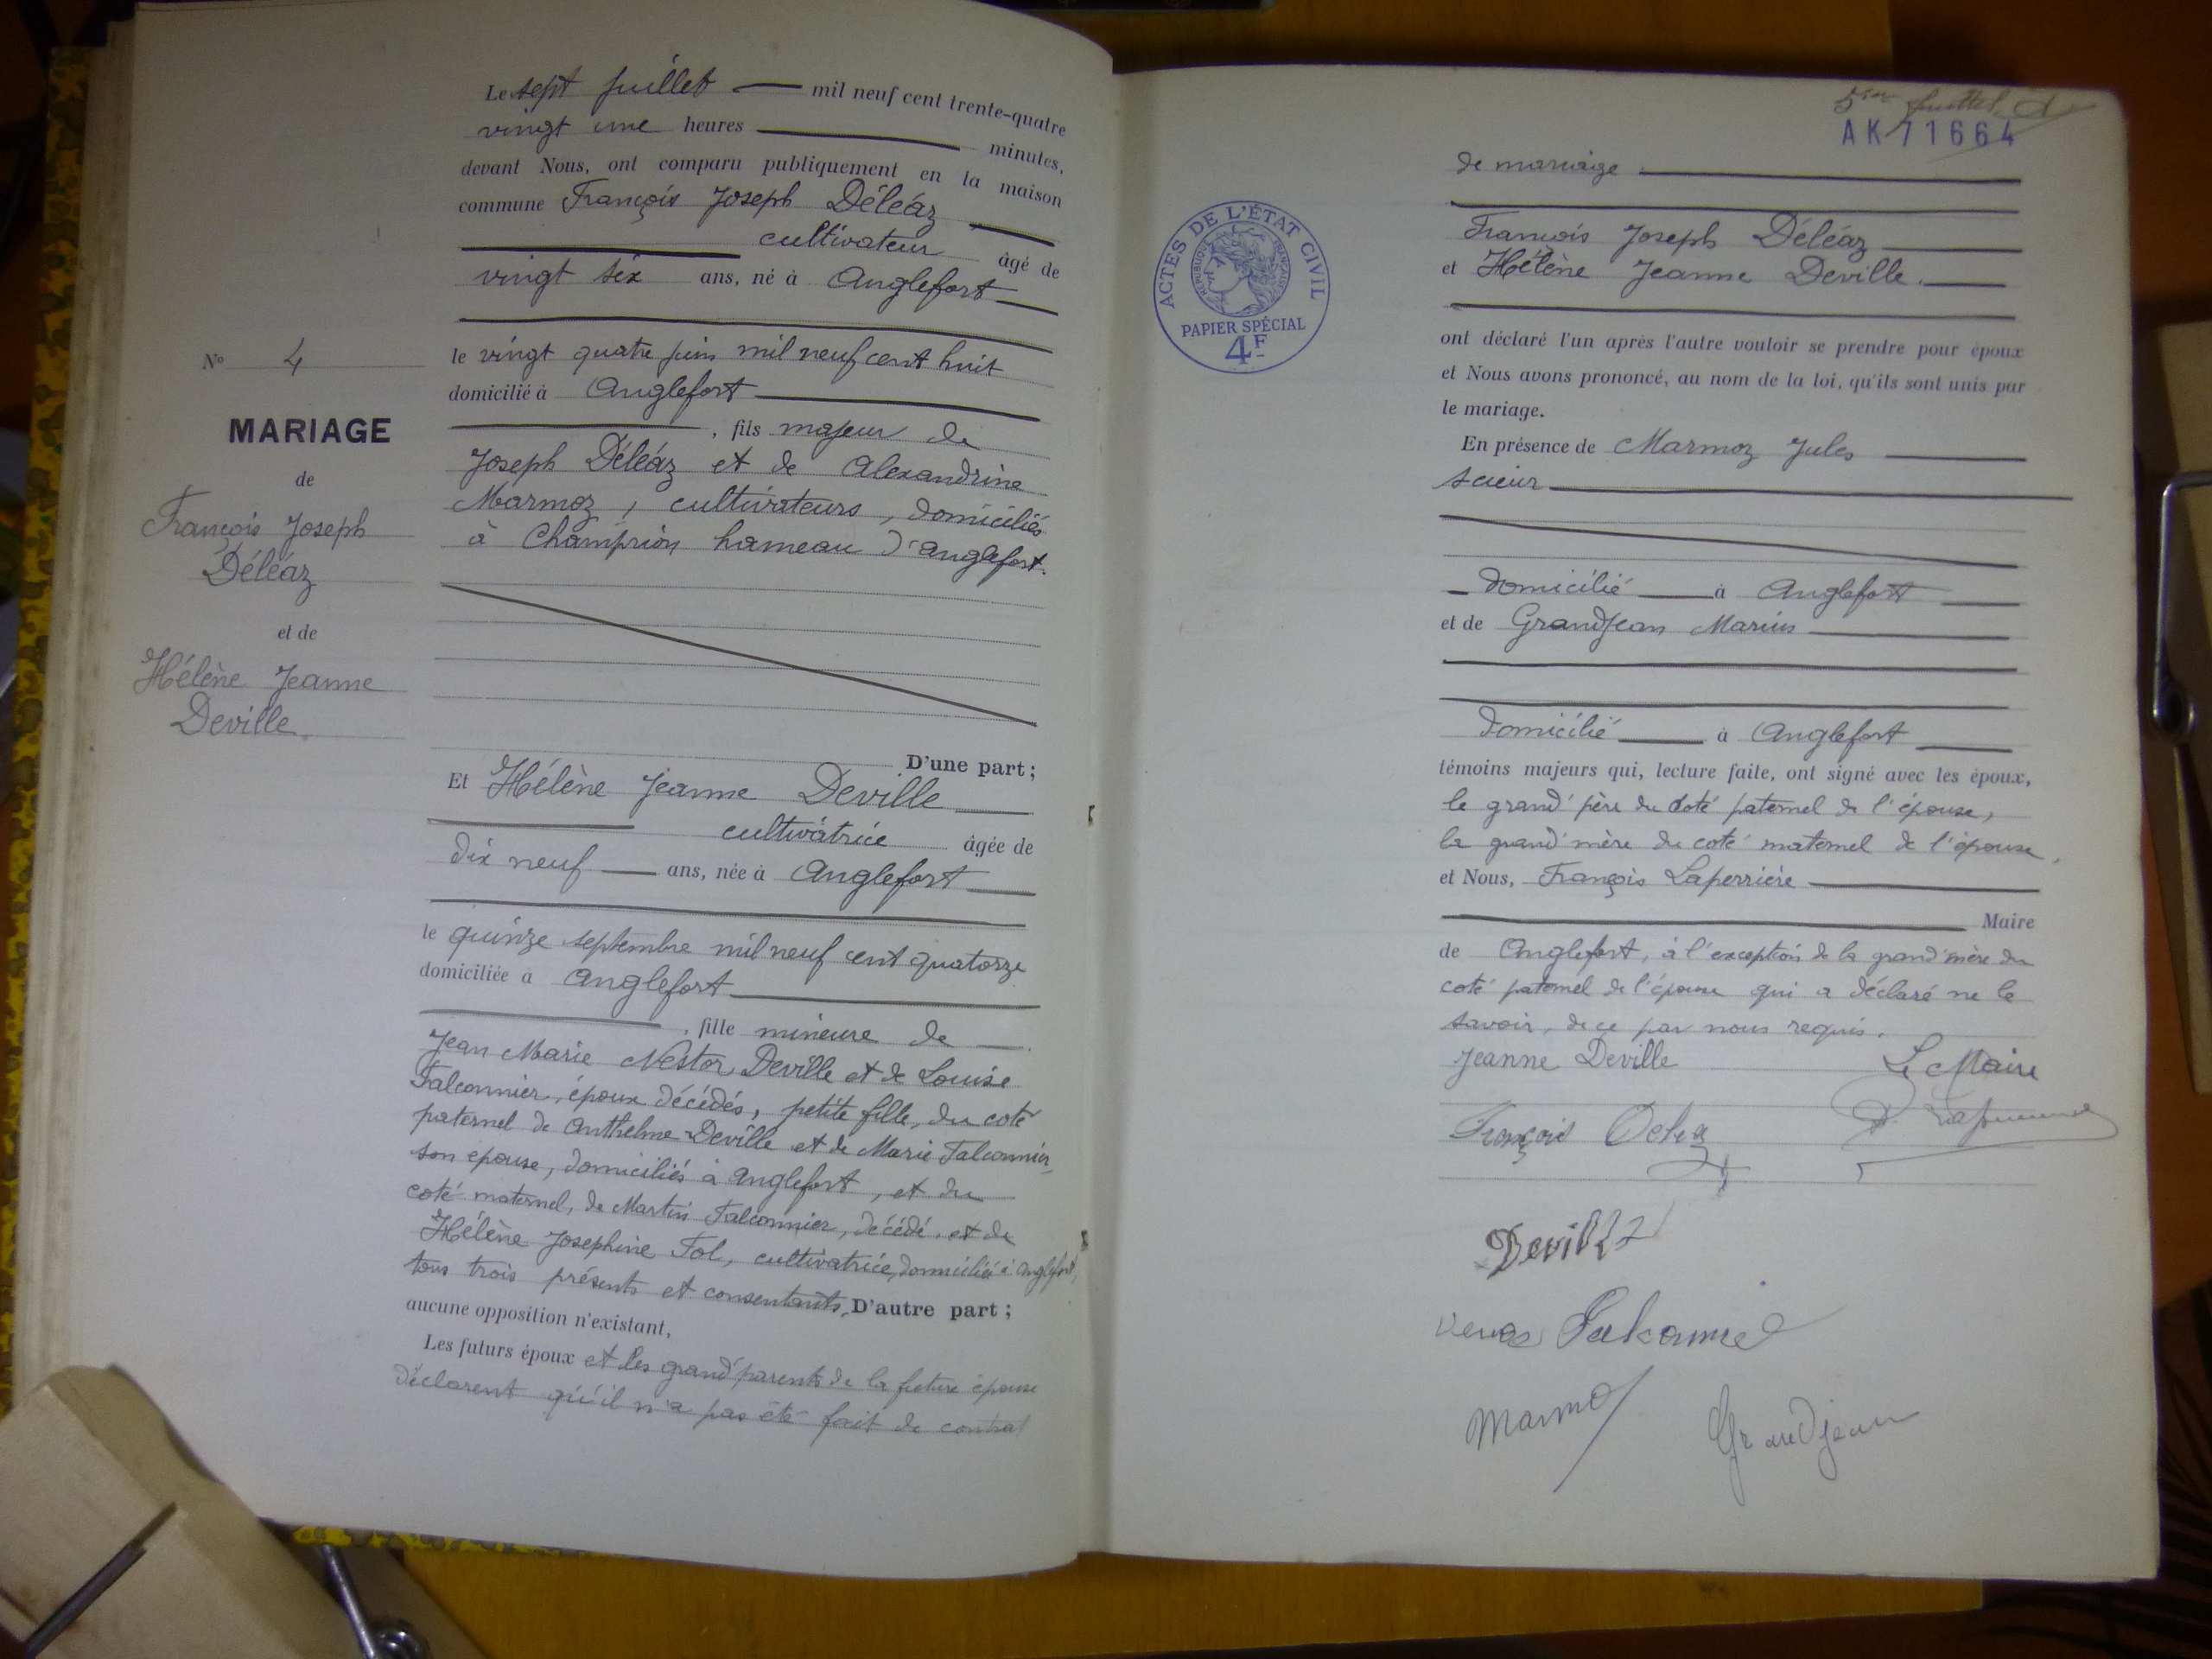 Le sept juillet mil neuf cent trente-quatre
vingt une heures minutes,
devant Nous, ont comparu publiquement en la maison
commune François Joseph Déléaz
cultivateur âgé de
vingt six ans, né à Anglefort
le vingt quatre juin mil neuf cent huit
domicilié à Anglefort
, fils majeur de
Joseph Déléaz et de Alexandrine
Marmoz, cultivateurs, domiciliés
à Champrion hameau d'Anglefort.
N° 4
MARIAGE
de
François Joseph
Déléaz
et de
Hélène Jeanne
Deville.
D'une part ;
Et Hélène Jeanne Deville
cultivatrice âgée de
dix neuf ans, née à Anglefort
le quinze septembre mil neuf cent quatorze
domiciliée à Anglefort
, fille mineure de
Jean Marie Nestor Deville et de Louise
Falconnier, époux décédés, petite fille, du coté
paternel de Anthelme Deville et de Marie Falconnier,
son épouse, domiciliés à Anglefort, et du
coté maternel, de Martin Falconnier, décédé, et de
Hélène Josephine Fol, cultivatrice, domiciliée à Anglefort,
tous trois présents et consentants, D'autre part ;
aucune opposition n'existant,
Les futurs époux et les grand'parents de la future épouse
déclarent qu'il n'a pas été fait de contrat
juillet
AK 71664
de mariage.
ACTES DE L'ÉTAT CIVIL
RÉPUBLIQUE FRANÇAISE
PAPIER SPÉCIAL
4F
François Joseph Déléaz
et Hélène Jeanne Deville.
ont déclaré l'un après l'autre vouloir se prendre pour époux
et Nous avons prononcé, au nom de la loi, qu'ils sont unis par
le mariage.
En présence de Marmoz Jules
scieur
domicilié à Anglefort
et de Grandjean Marius
domicilié à Anglefort
témoins majeurs qui, lecture faite, ont signé avec les époux,
le grand'père du coté paternel de l'épouse,
la grand'mère du coté maternel de l'épouse,
et Nous, François Laperrière
Maire
de Anglefort, à l'exception de la grand'mère du
coté paternel de l'épouse qui a déclaré ne le
savoir, de ce par nous requis.
Jeanne Deville Le Maire
François
Deville
Marmoz Grandjean